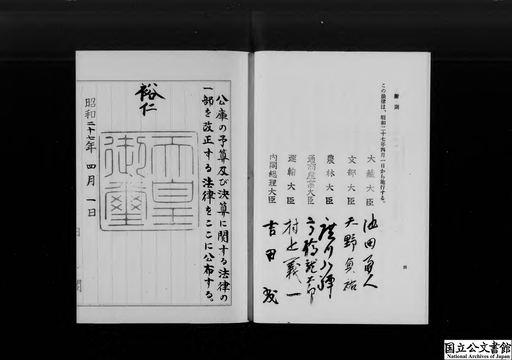 公庫の予算及び決算に関する法律の
一部を改正する法律をここに公布する。
裕仁
天皇
御璽
昭和二十七年四月一日
附則
この法律は、昭和二十七年四月一日から施行する。
大蔵大臣 池田勇人
文部大臣 天野貞祐
農林大臣 廣川弘禅
通商産業大臣 高橋龍太郎
運輸大臣 村上義一
内閣総理大臣 吉田茂
国立公文書館
National Archives of Japan